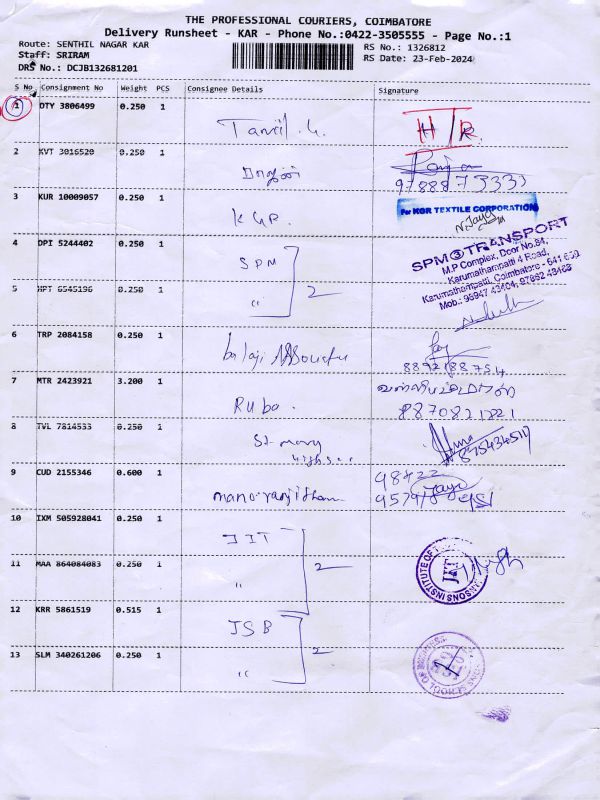 THE PROFESSIONAL COURIERS, COIMBATORE
Delivery Runsheet - KAR - Phone No.:0422-3505555 - Page No.:1
Route: SENTHIL NAGAR KAR
RS No.: 1326812
Staff: SRIRAM
RS Date: 23-Feb-2024
DRS No.: DCJB132681201
S No Consignment No Weight PCS Consignee Details Signature
1 DTY 3806499 0.250 1
H/R
2 KVT 3016520 0.250 1
3 KUR 10009057 0.250 1
KGR
For KGR TEXTILE CORPORATION
4 DPI 5244402 0.250 1
SPM
SPM TRANSPORT
M.P Complex, Door No.84,
Karumathampatti 4 Road,
Karumathampatti, Coimbatore - 641 659
5 HPT 6545196 0.250 1
" 2
6 TRP 2084158 0.250 1
balaji Associates
7 MTR 2423921 3.200 1
Ruba.
8870821221
8 TVL 7814533 0.250 1
St mary
9 CUD 2155346 0.600 1
mano-ranjitham
10 IXM 505928041 0.250 1
JIT
2
11 MAA 864084083 0.250 1
"
12 KRR 5861519 0.515 1
JSB
2
13 SLM 340261206 0.250 1
"